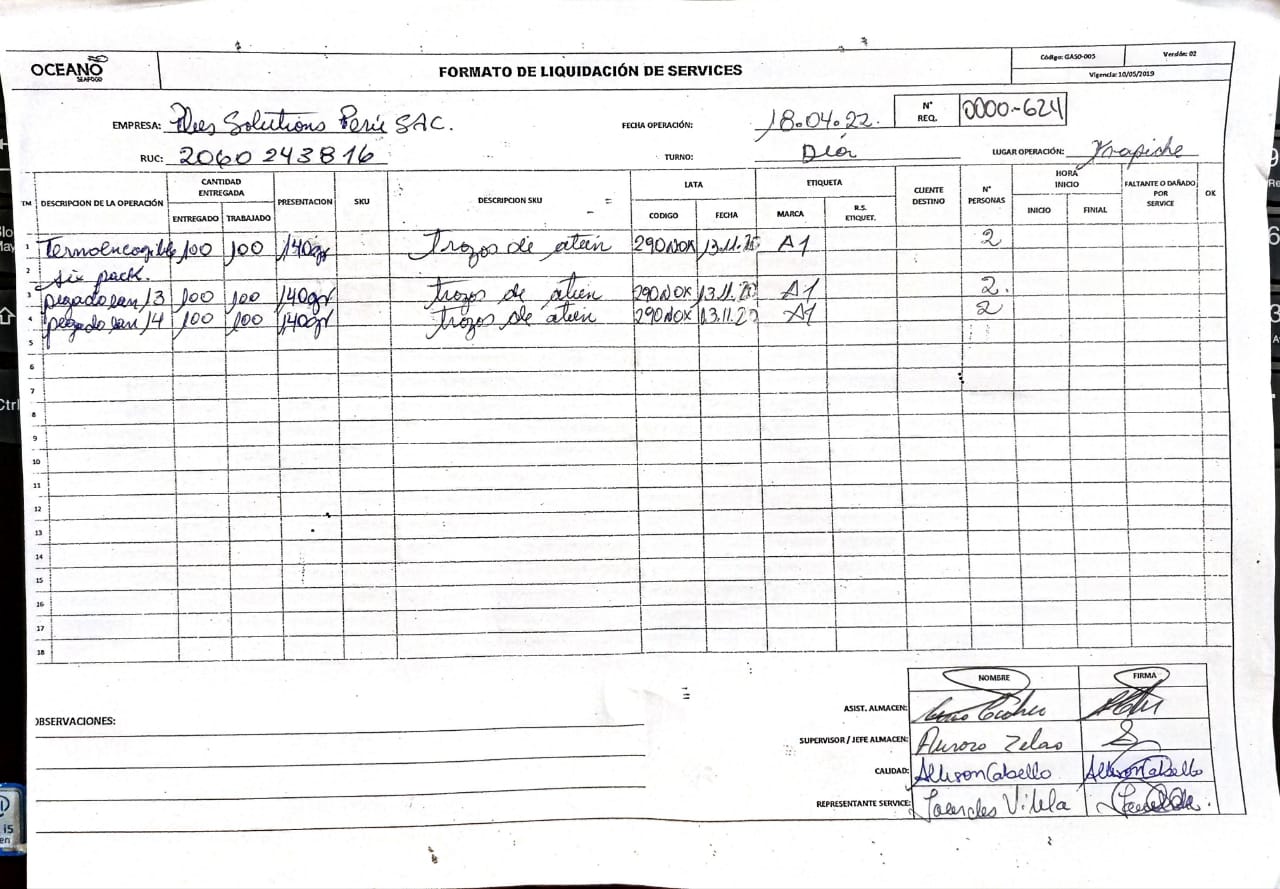 OCEANO
SEAFOOD
FORMATO DE LIQUIDACIÓN DE SERVICES
Código: GASO-005
Versión: 02
Vigencia: 10/05/2019
EMPRESA: Solutions Perú SAC.
FECHA OPERACIÓN: 18.04.22.
N° REQ. 0000-624
RUC: 2060 243816
TURNO: Día
LUGAR OPERACIÓN: Trapiche
TM DESCRIPCION DE LA OPERACIÓN CANTIDAD ENTREGADA PRESENTACION SKU DESCRIPCION SKU LATA ETIQUETA CLIENTE DESTINO N° PERSONAS HORA INICIO FALTANTE O DAÑADO POR SERVICE OK
ENTREGADO TRABAJADO CODIGO FECHA MARCA R.S. ETIQUET. INICIO FINIAL
1 Termoencogible 100 100 140gr trozos de atún 290NOX 13.11.20 A1 2
2 six pack.
3 pegado san 13 100 100 140gr trozos de atún 290NOX 13.11.20 A1 2.
4 pegado san 14 100 100 140gr trozos de atún 290NOX 13.11.20 A1 2
5
6
7
8
9
10
11
12
13
14
15
16
17
18
NOMBRE FIRMA
OBSERVACIONES:
ASIST. ALMACEN:
SUPERVISOR / JEFE ALMACEN: Aurora Zelao
CALIDAD: Allison Cabello Allison Cabello
REPRESENTANTE SERVICE: Lourdes Vilela
Ctrl
i5